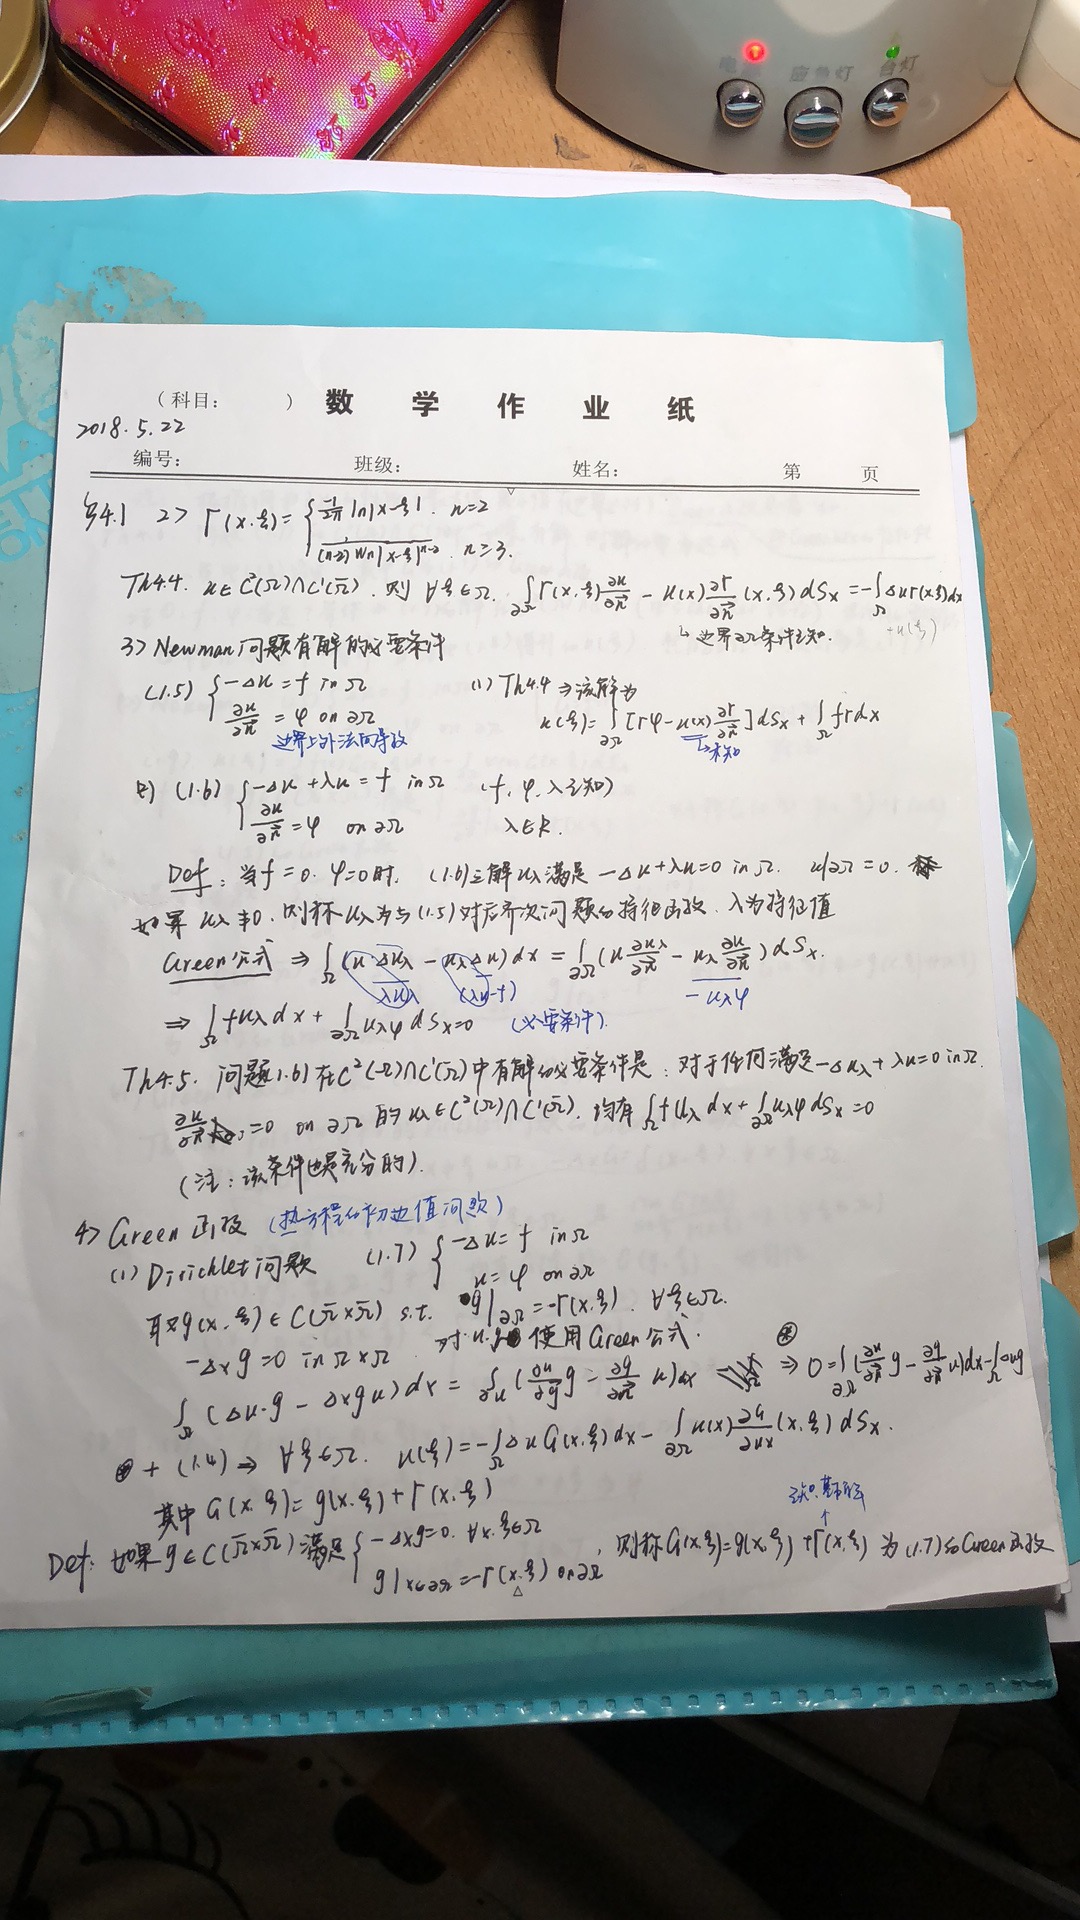 电 应急灯 台灯
(科目: ) 数学作业纸
2018.5.22
编号: 班级: 姓名: 第 页
§4.1 2> Γ(x,ξ)= { -1/2π ln|x-ξ|. n=2
1/((n-2)Wn|x-ξ|^(n-2)). n≥3.
Th4.4. u∈C²(Ω)∩C¹(Ω̄). 则 ∀ξ∈Ω. ∫_∂Ω Γ(x,ξ)∂u/∂n⃗ - u(x)∂Γ/∂n⃗ (x,ξ) dSx = -∫_Ω ΔuΓ(x,ξ)dx
+u(ξ)
↳ 边界∂Ω条件已知.
3> Newman问题有解的必要条件
(1.5) { -Δu=f in Ω
∂u/∂n⃗ = φ on ∂Ω
边界上外法向导数
(1) Th4.4 ⇒ 该解为
u(ξ)=∫_∂Ω [Γφ-u(x)∂Γ/∂n⃗]dSx + ∫_Ω fΓdx
↳未知
(1.6) { -Δu+λu=f in Ω (f, φ, λ已知)
∂u/∂n⃗=φ on ∂Ω λ∈R.
Def: 当f=0. φ=0时. (1.6)之解uλ满足 -Δu+λu=0 in Ω. u|∂Ω=0.
如果 uλ≢0. 则称uλ为与(1.5)对应齐次问题的特征函数. λ为特征值
Green公式 ⇒ ∫_Ω (u Δuλ - uλ Δu)dx = ∫_∂Ω (u ∂uλ/∂n⃗ - uλ ∂u/∂n⃗) dSx.
λuλ (λu-f) -uλφ
⇒ ∫_Ω fuλdx + ∫_∂Ω uλφdSx=0 (必要条件).
Th4.5. 问题(1.6)在C²(Ω)∩C¹(Ω̄)中有解的必要条件是: 对于任何满足-Δuλ+λu=0 in Ω.
∂u/∂n⃗=0 on ∂Ω 的 uλ∈C²(Ω)∩C¹(Ω̄). 均有∫_Ω fuλdx+∫_∂Ω uλφdSx=0
(注: 该条件也是充分的).
4> Green函数 (热方程的初边值问题)
(1) Dirichlet问题 (1.7) { -Δu=f in Ω
u=φ on ∂Ω
取g(x,ξ)∈C(Ω̄×Ω̄) s.t. g|∂Ω=-Γ(x,ξ). ∀ξ∈Ω.
-Δxg=0 in Ω×Ω 对u.g 使用Green公式.
∫_Ω (Δu·g - Δxg u)dx = ∫_∂u (∂u/∂g⃗ g - ∂g/∂n⃗ u)dx ⊛ ⇒ 0=∫_∂Ω (∂u/∂n⃗ g - ∂g/∂n⃗ u)dx-∫_Ω Δug
⊛ + (1.4) ⇒ ∀ξ∈Ω. u(ξ)=-∫_Ω Δu G(x,ξ)dx - ∫_∂Ω u(x) ∂G/∂nx (x,ξ) dSx.
其中 G(x,ξ)=g(x,ξ)+Γ(x,ξ)
Def: 如果 g∈C(Ω̄×Ω̄) 满足 { -Δxg=0. ∀x,ξ∈Ω
g|x∈∂Ω=-Γ(x,ξ) on ∂Ω
, 则称G(x,ξ)=g(x,ξ)+Γ(x,ξ) 为(1.7)的Green函数